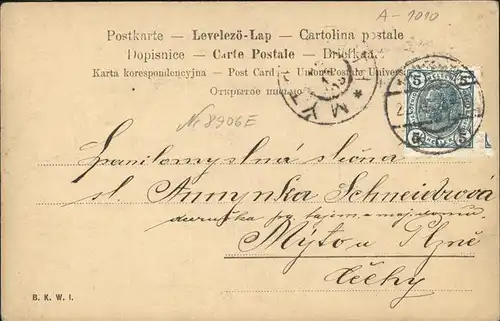 A-1010
Postkarte — Levelező-Lap — Cartolina postale
Dopisnice — Carte Postale — Briefkaart
Karta korespondencyjna — Post Card — Union Postale Universelle
Открытое письмо
MÝTO
5 5
5 5
№ 8906E
Spanilomyslná slečna
sl. Annynka Schneidrová
Mýto u Plzně
Čechy
B. K. W. I.